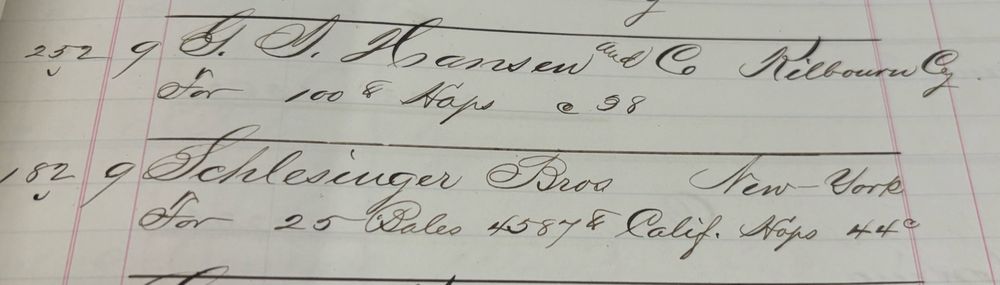 252 9 G. S. Hansen and Co Kilbourn Cy
For 100 ℔ Hops @ 38
182 9 Schlesinger Bros New-York
For 25 Bales 4587 ℔ Calif. Hops 44c